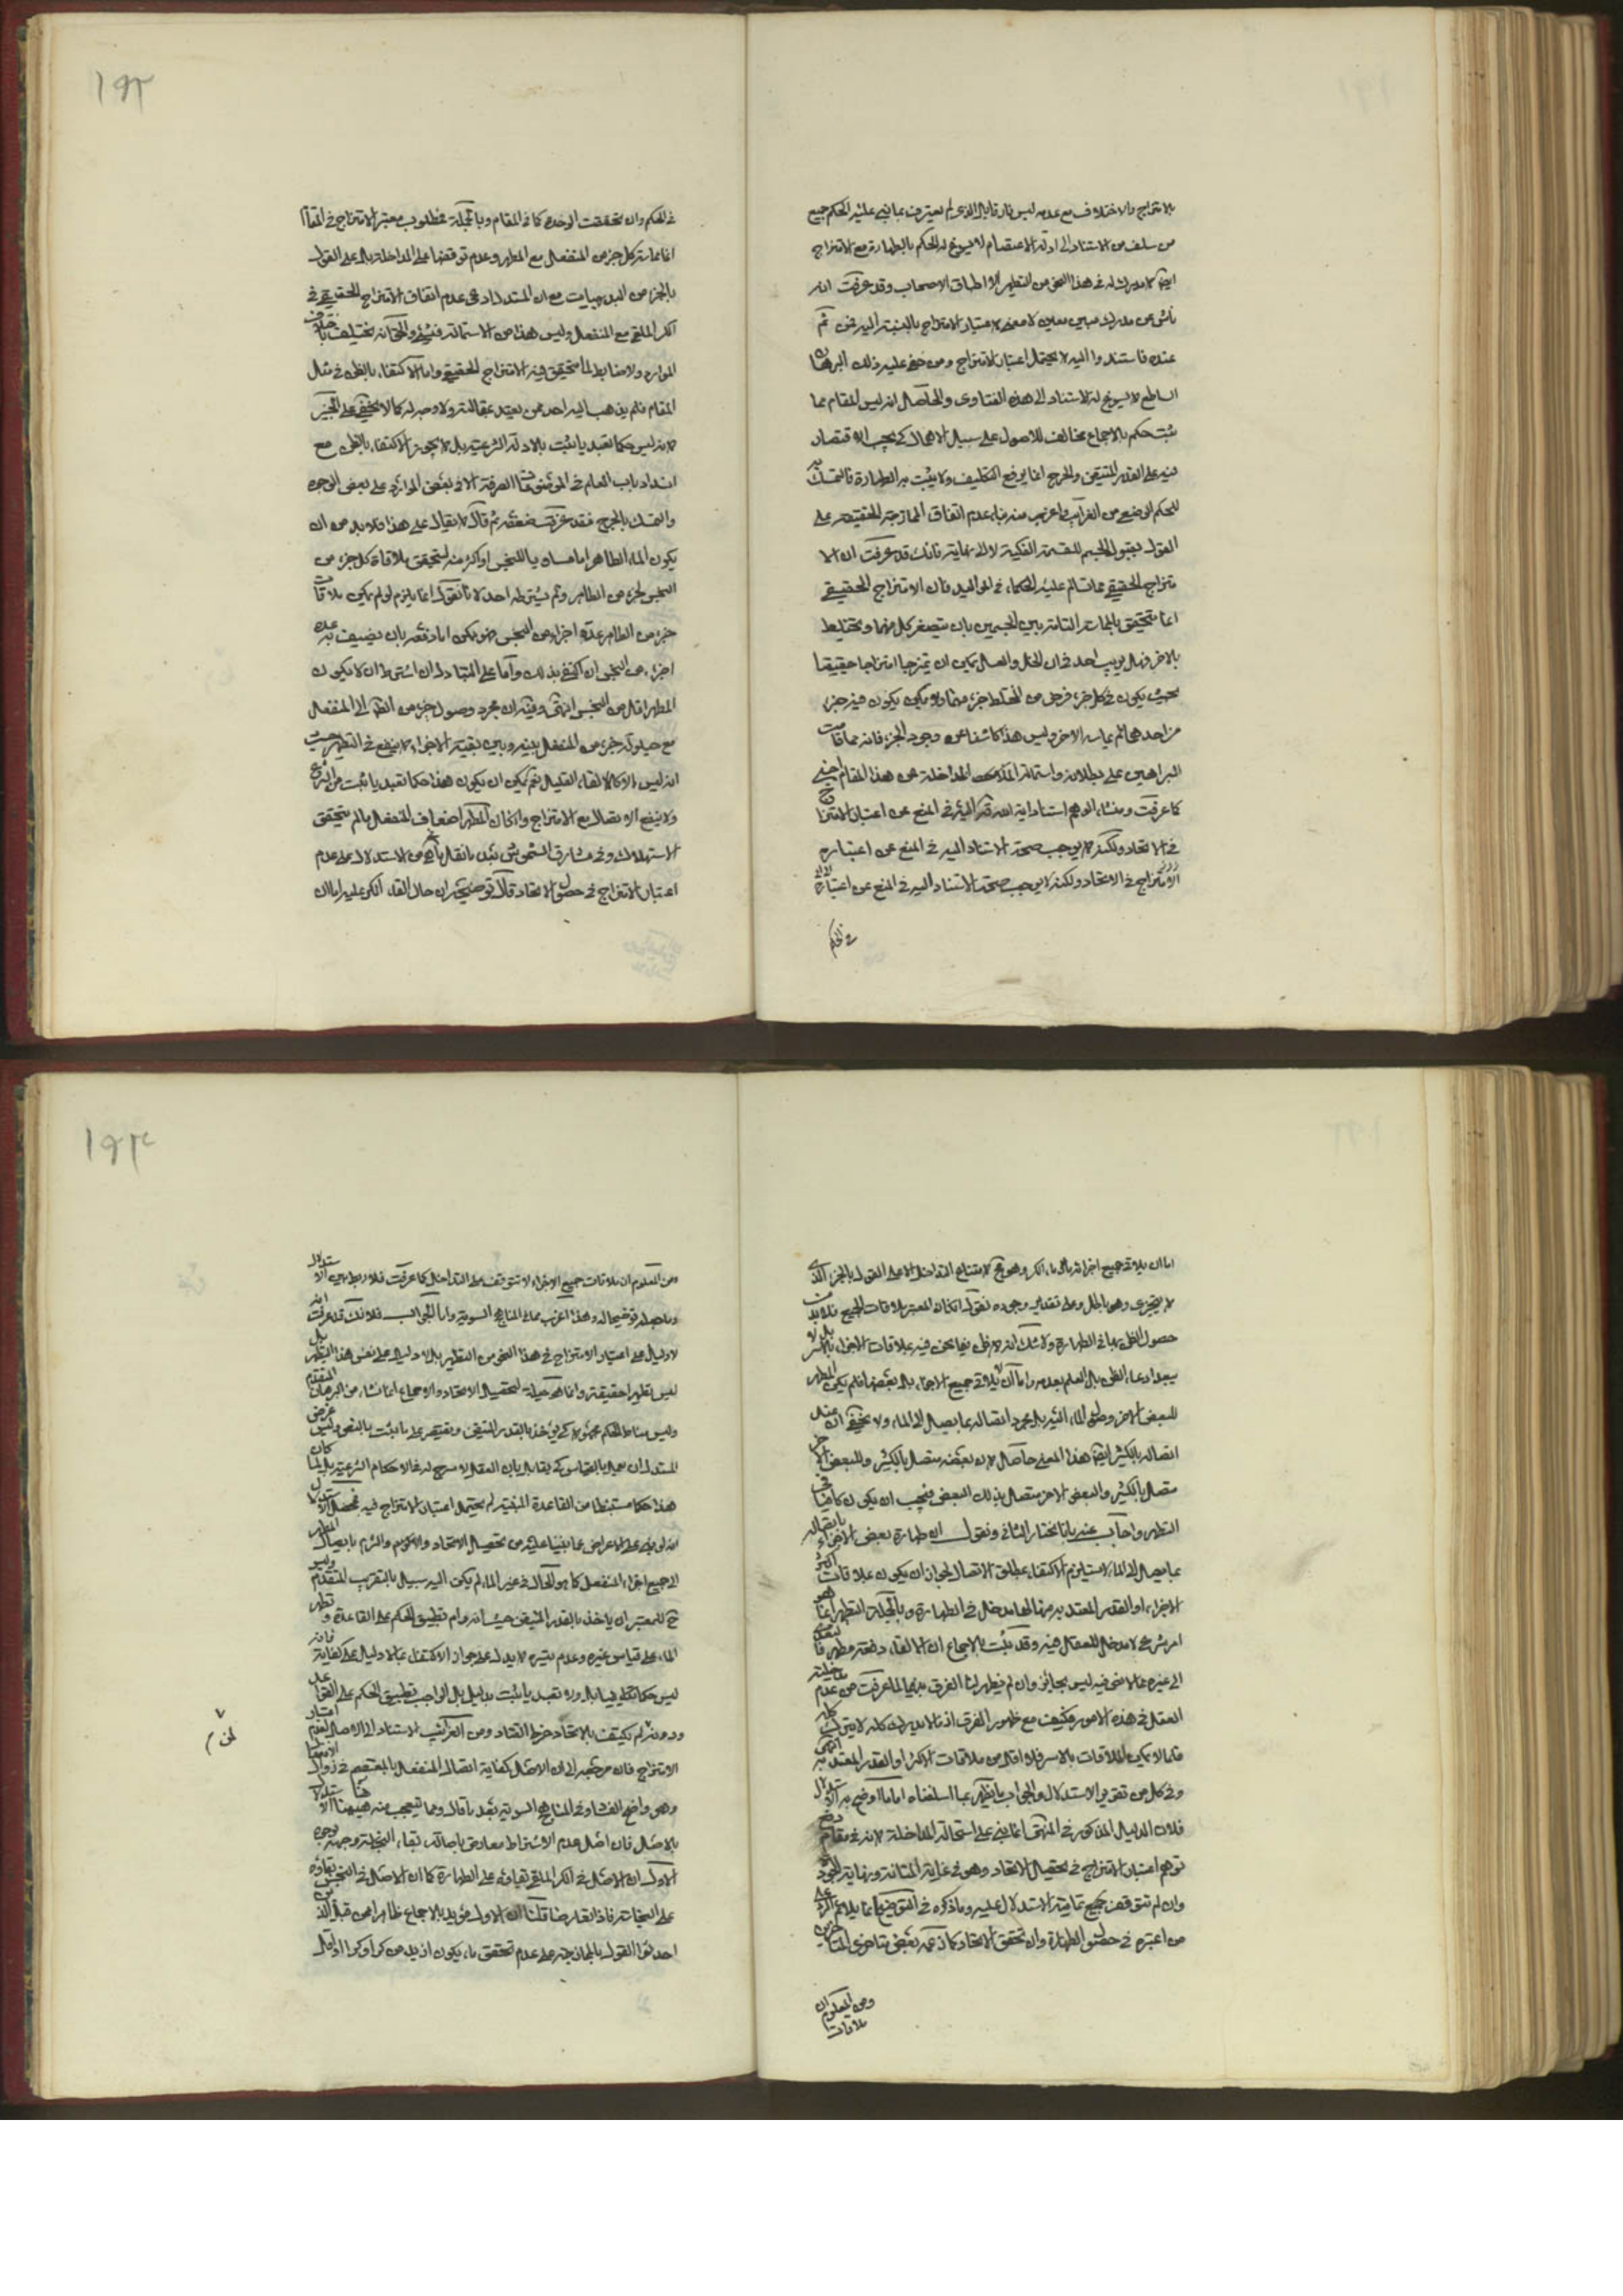 بالامتزاج والاختلاف مع عدمه ليس فارقا بل الذى لم يعترف بما نبنى عليه الحكم جميع
من سلف من الاستناد الى ادلة الاعتصام لا يسوغ له الحكم بالطهارة مع الامتزاج
ايضا لا مدرك له فى هذا النحو من التطهير الا اطباق الاصحاب وقد عرفت انه
ناش عن مدرك مبين معين لا معنى لاعتبار الامتزاج بالنسبة اليه فمن تم
عنده فاستند اليه لا يحتمل اعتبار الامتزاج ومن خفى عليه ذلك البرهان
الساطع لا يسوغ له الاستناد الى هذه الفتاوى والحاصل انه ليس المقام مما
ثبت حكم بالاجماع مخالف للاصول على سبيل الاهمال كى يجب الاقتصار
فيه على القدر المتيقن والحرج انما يرفع التكليف ولا يثبت به الطهارة فالتمسك به
للحكم الوضعى من الغرائب واغرب منه بناء عدم اتفاق الممازجة الحقيقية على
القول بقبول الجسم للقسمة الفكية لا الى نهاية فانك قد عرفت ان الا
متزاج الحقيقى مما تسالم عليه الحكماء فى المواليد فان الامتزاج الحقيقى
انما يتحقق بالمماسة التامة بين الجسمين بان يتصغر كل منهما ويختلط
بالاخر فهل يريب احد فى ان الخل والعسل يمكن ان يمتزجا امتزاجا حقيقيا
بحيث يكون فى كل جزء فرض من المختلط جزء منهما ولم يكن يكون فيه جزء
من احدهما لم يماسه الاخر وليس هذا كاشفا عن وجود الجزء فانه مما قامت
البراهين على بطلانه واستحالة المداخلة عن هذا المقام اجنبى
كما عرفت ومنشاء الوهم استناد اية الله قده اليه فى المنع عن اعتبار الامتزاج
فى الاتحاد ولكنه لا يوجب صحة الاستناد اليه فى المنع عن اعتباره
الامتزاج فى الاتحاد ولكنه لا يوجب صحة الاستناد اليه فى المنع عن اعتباره
فى الحكم
١٩٢
فى الحكم وان تحققت الوحدة كما فى المقام وبالجملة فمطلوب معتبر الامتزاج فى المقام
انما مماسة كل جزء من المنفعل مع المطهر وعدم توقفها على المداخلة بل على القول
بالجزء من البديهيات مع ان المستدل ادعى عدم اتفاق الامتزاج الحقيقى فى
الكر الملقى مع المنفعل وليس هذا من الاستحالة فى شىء والحق انه يختلف باختلاف
الموارد ولا ضابط لما يتحقق فيه الامتزاج الحقيقى واما الاكتفاء بالظن فى مثل
المقام فلم يذهب اليه احد ممن يعتد بمقالته ولا وجه له كما لا يخفى على الخبير
لانه ليس حكما تعبديا يثبت بالادلة الشرعية بل لا يجوز الاكتفاء بالظن مع
انسداد باب العلم فى الموضوعات الصرفة الا فى بعض الموارد على بعض الوجوه
والتمسك بالحرج فقد عرفت ضعفه ثم قال لا يقال على هذا فلا بد من ان
يكون الماء الطاهر اما مساويا للنجس او اكثر منه لتحقق ملاقاة كل جزء من
النجس لجزء من الطاهر ولم يشترطه احد لانا نقول انما يلزم لو لم يكن ملاقات
جزء من الطاهر عدة اجزاء من النجس ممكن اما دفعة بان يضيف به عدة
اجزاء من النجس ان اكتفى بذلك واما على التبادل ان اشترط ان لا يكون
المطهر اقل من النجس انتهى وفيه ان مجرد وصول جزء من الطهر الى المنفعل
مع حيلولة جزء من المنفعل بينه وبين بقية الاجزاء لا ينفع فى التطهير حيث
انه ليس الا كالقاء القليل نعم يمكن ان يكون هذا حكما تعبديا يثبت من الشرع
ولا ينفع الاتصال مع الامتزاج وان كان المطهر اضعاف المنفعل ما لم يتحقق
الاستهلاك وفى مشارق الشموس بعد ما نقل ما مر من الاستدلال على عدم
اعتبار الامتزاج فى حصول الاتحاد قال توضيحه ان حال القاء الكر عليه اما ان
اما ان يلاقى جميع اجزائه ماء الكر وهو مح لامتناع التداخل الا على القول بالجزء الذى
لا يتجزى وهو باطل وعلى تقدير وجوده نقول ان كان المعتبر ملاقات الجميع فلا بد من
حصول الظن بها فى الطهارة ولا شك انه لا ظن فيما نحن فيه بملاقات الاجزاء بالاسر بل لا
يبعد ادعاء الظن بل العلم بعدمه واما ان لا يلاقى جميع الاجزاء بل بعضها فلم يكن المطهر
للبعض الاخر وصول الماء اليه بل مجرد اتصاله بما يصل الى الماء ولا يخفى ان عند
اتصاله بالكثير ايضا هذا المعنى حاصل لان بعضه متصل بالكثير والبعض الاخر
متصل بالكثير والبعض الاخر متصل بذلك البعض فيجب ان يكون كافيا فى
التطهر واجاب عنه بانا نختار الثانى ونقول ان طهارة بعض الاجزاء باتصاله
بما يصل الى الماء لا يستلزم الاكتفاء بمطلق الاتصال لجواز ان يكون بملاقات اكثر
الاجزاء او القدر المعتد به منها لها مدخل فى الطهارة وبالجملة التطهر انما هو
امر شرعى لا مدخل للعقل فيه وقد ثبت بالاجماع ان الالقاء دفعة مطهر فالتعدى
الى غيره مما لا نص فيه ليس بجائز وان لم يظهر لنا الفرق بينهما لما عرفت من عدم مدخلية
العقل فى هذه الامور فكيف مع ظهور الفرق اذ ما لا يدرك كله لا يترك كله
فلما لا يمكن الملاقات بالاسر فلا اقل من ملاقات الاكثر او القدر المعتد به انتهى
وفى كل من تقرير الاستدلال والجواب ما يظهر بما اسلفناه اما ما اوضح به الاستدلال
فلان الدليل المذكور فى المنتهى انما يبنى على استحالة المداخلة لانه فى مقام دفع
توهم اعتبار الامتزاج فى تحصيل الاتحاد وهو فى غاية المتانة ونهاية الجودة
وان لم تتوقف حجج تمامية الاستدلال عليه وما ذكره فى التوضيح انما يلائم الرد على
من اعتبره فى حصول الطهارة وان تحقق الاتحاد كما زعمه بعض متاخرى المتاخرين
ومن المعلوم ان
ملاقات
١٩٣
ومن المعلوم ان ملاقات جميع الاجزاء لا تتوقف على التداخل كما عرفت فلا ربط بين الاستدلال
وما جعله توضيحا له وهذا اغرب مما فى المناهج السوية واما الجواب فلانك قد عرفت انه
لا دليل على اعتبار الامتزاج فى هذا النحو من التطهير بل لا دليل على نفس هذا التطهر بل
ليس تطهيرا حقيقة وانما هو حيلة لتحصيل الاتحاد والاجماع انما نشاء من البرهان المتقدم
وليس مناط الحكم مجهولا كى يؤخذ بالقدر المتيقن ويقتصر على ما ثبت بالنص وليس غرض
المستدل ان يعمل بالقياس كى يقابل بان العقل لا مسرح له فى الاحكام الشرعية بل لما كان
هذا حكما مستنبطا من القاعدة المتقنة لم يحتمل اعتبار الامتزاج فيه فمحصل الاستدلال
انه لو بنى على الاعراض عما بنينا عليه من تحصيل الاتحاد والالتزام بايصال المطهر
الى جميع اجزاء المنفعل كما هو الحال فى غير الماء لم يكن اليه سبيل بالتقريب المتقدم وليس
ح للمعتبر ان ياخذ بالقدر المتيقن حيث انه رام تطبيق الحكم على القاعدة وتطهر
الماء على قياس غيره وعدم تيسره لا يدل على جواز الاكتفاء بما لا دليل على كفايته فانه
ليس حكما تكليفيا بل ولا تعبديا يثبت بدليل بل الواجب تطبيق الحكم على القواعد
ودونه لم يكتف بالاتحاد خرط القتاد ومن الغرائب الاستناد الى الاصل لعدم اعتبار
لحق م
الامتزاج فان مرجعه الى ان الاصل كفاية اتصال المنفعل بالمعتصم فى زوال الانفعال
وهو واضح الفساد وفى المناهج السوية بعد ما قال ومما يتعجب منه هيهنا الاستدلال
بالاصل فان اصل عدم الاشتراط معارض باصالة بقاء النجاسة وجهه بوجوه
الاول ان الاصل فى الكر الملقى بقاؤه على الطهارة كما ان الاصل فى النجس بقاؤه
على النجاسة فاذا تعارضا قلنا ان الاول مؤيد بالاجماع ظاهرا من قبل الذين
احدثوا القول بالممازجة على عدم تحقق ماء يكون ازيد من كر او كرا او اقل